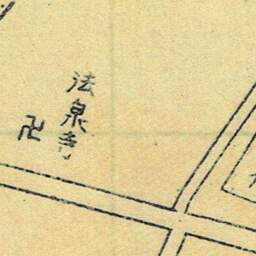 法泉寺
卍